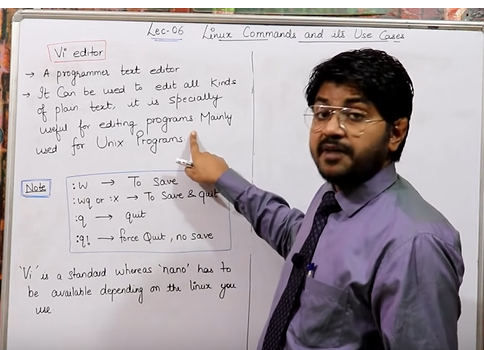 Lec-06 Linux Commands and its Use Cases
Vi editor
→ A programmer text editor
→ It Can be used to edit all kinds
of plain text, it is specially
useful for editing programs Mainly
used for Unix Programs
Note
:w → To Save
:wq or :x → To Save & quit
:q → quit
:q! → force Quit, no save
'Vi' is a standard whereas 'nano' has to
be available depending on the linux you
use